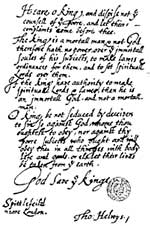 Heare, O King, and dispise not ye
counsell of ye poore, and let their
complaints come before thee.
The King is a mortall man, and not God
therefore hath no power over ye immortall
soules of his subiects, to make lawes &
ordinances for them, and to set spirituall
Lords over them.
If the King have authority to make
spirituall Lords & lawes, then he is
an immortall God, and not a mortall
man.
O King, be not seduced by deceivers
to sin so against God whome thou
oughtest to obey, nor against thy
poore subiects who ought and will
obey thee in all thinges with body
life and goods, or els let their lives
be taken from ye earth.
God Save ye King
Spittlefeild
neare London.
Tho: Helwys.